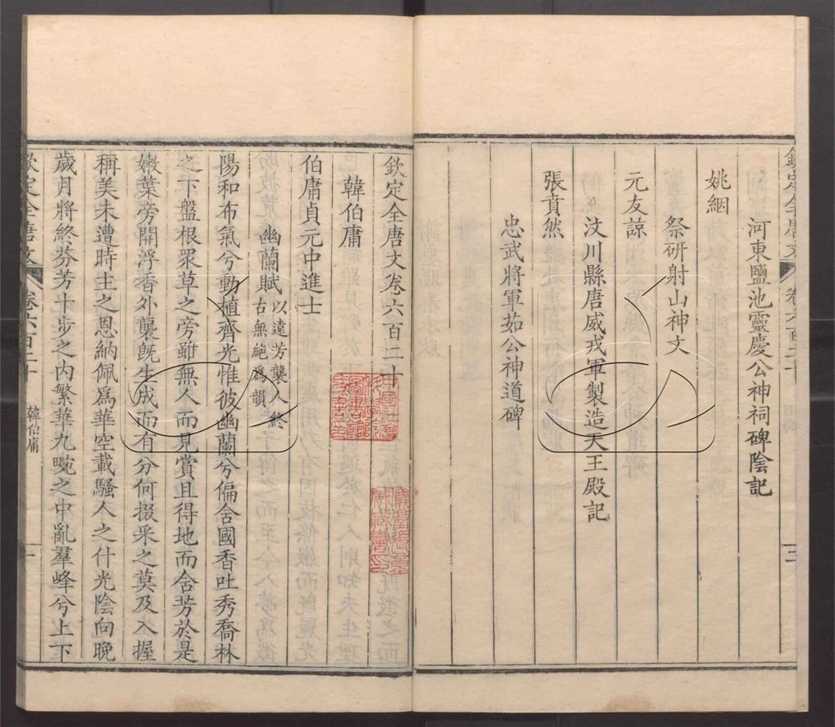 河東鹽池靈慶公神祠碑陰記
姚絪
祭研射山神文
元友諒
汶川縣唐威戎軍製造天王殿記
張賁然
忠武將軍茹公神道碑
欽定全唐文卷六百二十
三
欽定全唐文卷六百二十
韓伯庸
伯庸貞元中進士
幽蘭賦以遠芳襲人終古無絕爲韻
陽和布氣兮動植齊光惟彼幽蘭兮偏含國香吐秀喬林
之下盤根眾草之旁雖無人而見賞且得地而含芳於是
嫩葉旁開浮香外襲旣生成而有分何掇采之莫及入握
稱美未遭時主之恩納佩爲華空載騷人之什光陰向晚
歲月將終芬芳十步之內繁華九畹之中亂羣峰兮上下
欽定全唐文
卷六百二十
韓伯庸
一